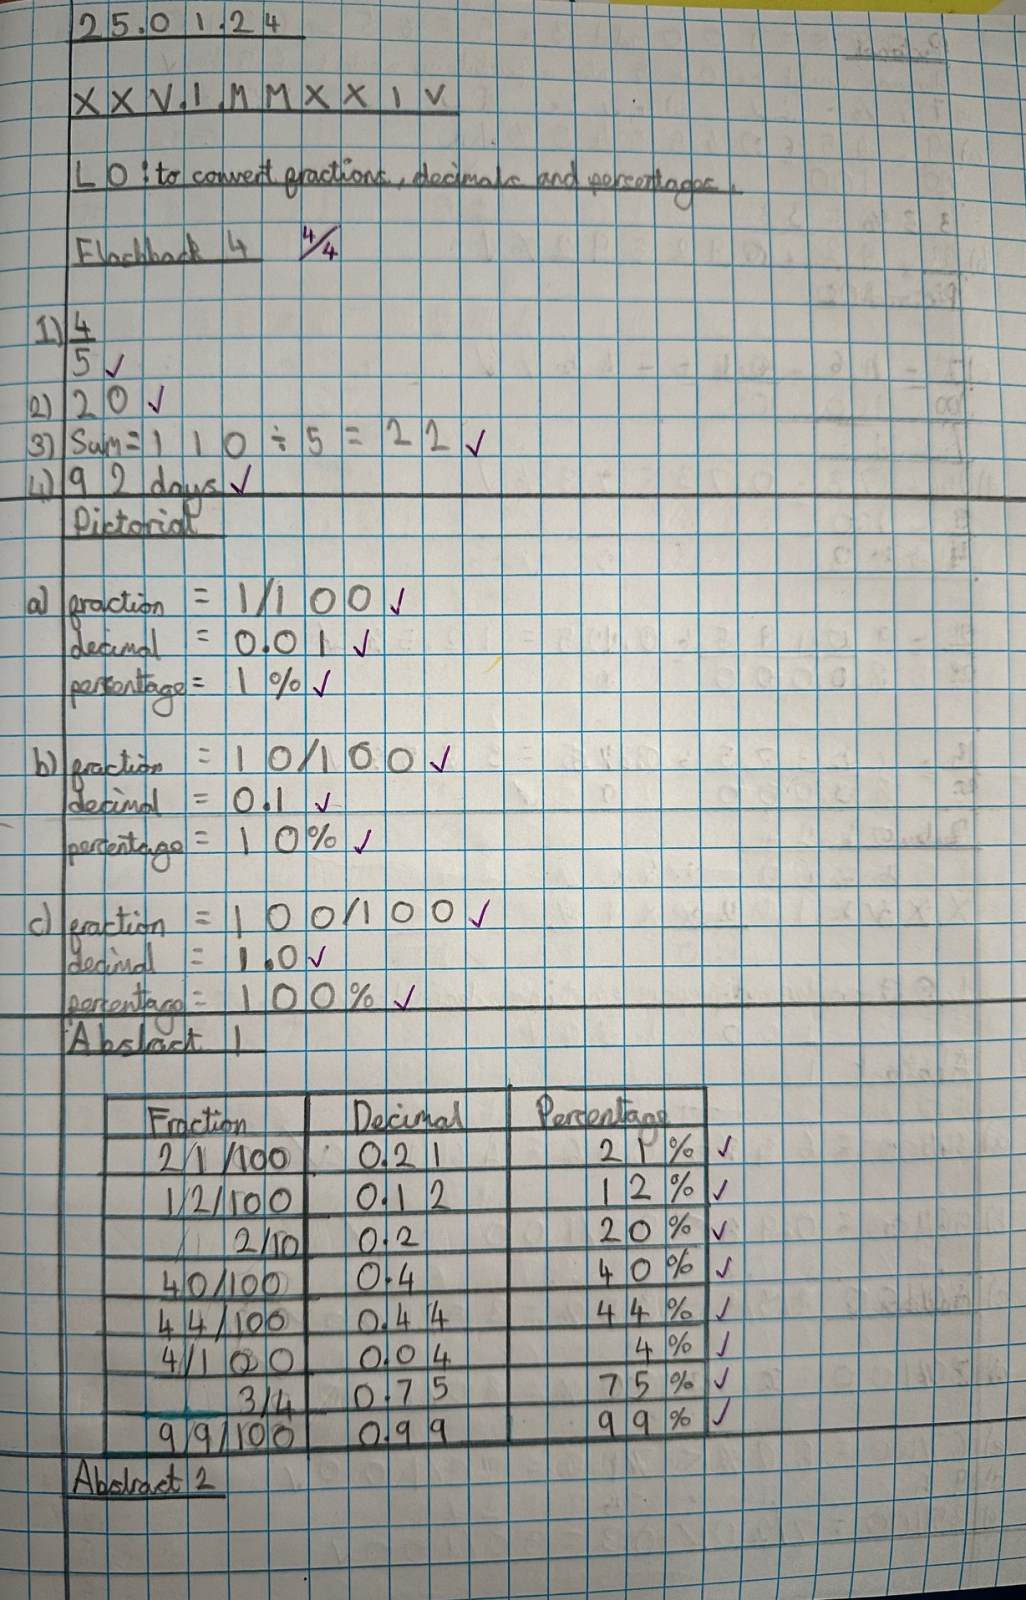 25.01.24
XXV.I.MMXXIV
LO: to convert fractions, decimals and percentages.
Flashback 4 4/4
1) 4/5 ✓
2) 20 ✓
3) Sum = 110 ÷ 5 = 22 ✓
4) 92 days ✓
Pictorial
a) fraction = 1/100 ✓
decimal = 0.01 ✓
percentage = 1% ✓
b) fraction = 10/100 ✓
decimal = 0.1 ✓
percentage = 10% ✓
c) fraction = 100/100 ✓
decimal = 1.0 ✓
percentage = 100% ✓
Abstract 1
Fraction Decimal Percentage
21/100 0.21 21% ✓
12/100 0.12 12% ✓
2/10 0.2 20% ✓
40/100 0.4 40% ✓
44/100 0.44 44% ✓
4/100 0.04 4% ✓
3/4 0.75 75% ✓
99/100 0.99 99% ✓
Abstract 2